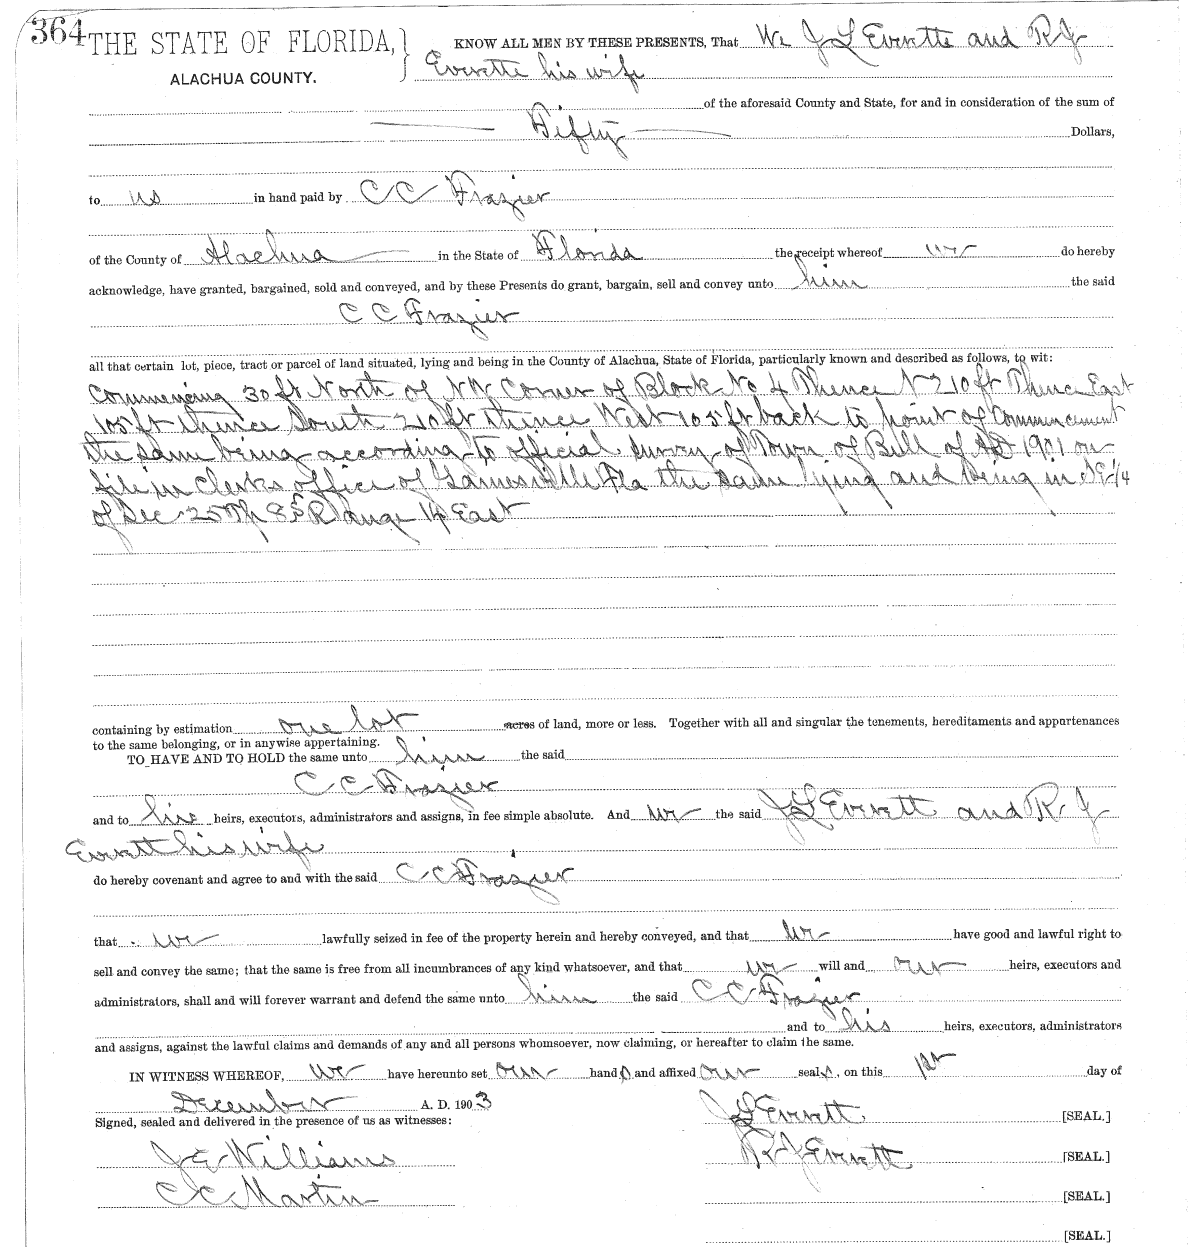 364 THE STATE OF FLORIDA, KNOW ALL MEN BY THESE PRESENTS, That We J L Everette and R J
ALACHUA COUNTY. Everette his wife
of the aforesaid County and State, for and in consideration of the sum of
Fifty Dollars,
to us in hand paid by C C Frazier
of the County of Alachua in the State of Florida the receipt whereof we do hereby
acknowledge, have granted, bargained, sold and conveyed, and by these Presents do grant, bargain, sell and convey unto him the said
C C Frazier
all that certain lot, piece, tract or parcel of land situated, lying and being in the County of Alachua, State of Florida, particularly known and described as follows, to wit:
Commencing 30 ft North of NW Corner of Block No 4 Thence N 210 ft Thence East
105 ft thence South 210 ft thence West 105 ft back to point of Commencement
the same being according to official survey of Town of Bell of AD 1901 on
file in Clerks office of Gainesville Fla the same lying and being in 1/4
of Sec 25 Tp 8 S Range 14 East
containing by estimation one lot acres of land, more or less. Together with all and singular the tenements, hereditaments and appurtenances
to the same belonging, or in anywise appertaining.
TO HAVE AND TO HOLD the same unto him the said
C C Frazier
and to his heirs, executors, administrators and assigns, in fee simple absolute. And we the said J L Everett and R J
Everett his wife
do hereby covenant and agree to and with the said C C Frazier
that we lawfully seized in fee of the property herein and hereby conveyed, and that we have good and lawful right to
sell and convey the same; that the same is free from all incumbrances of any kind whatsoever, and that we will and our heirs, executors and
administrators, shall and will forever warrant and defend the same unto him the said C C Frazier
and to his heirs, executors, administrators
and assigns, against the lawful claims and demands of any and all persons whomsoever, now claiming, or hereafter to claim the same.
IN WITNESS WHEREOF, we have hereunto set our hands and affixed our seals, on this 1st day of
December A. D. 1903
Signed, sealed and delivered in the presence of us as witnesses: J L Everett [SEAL.]
J E Williams R J Everett [SEAL.]
C C Martin [SEAL.]
[SEAL.]